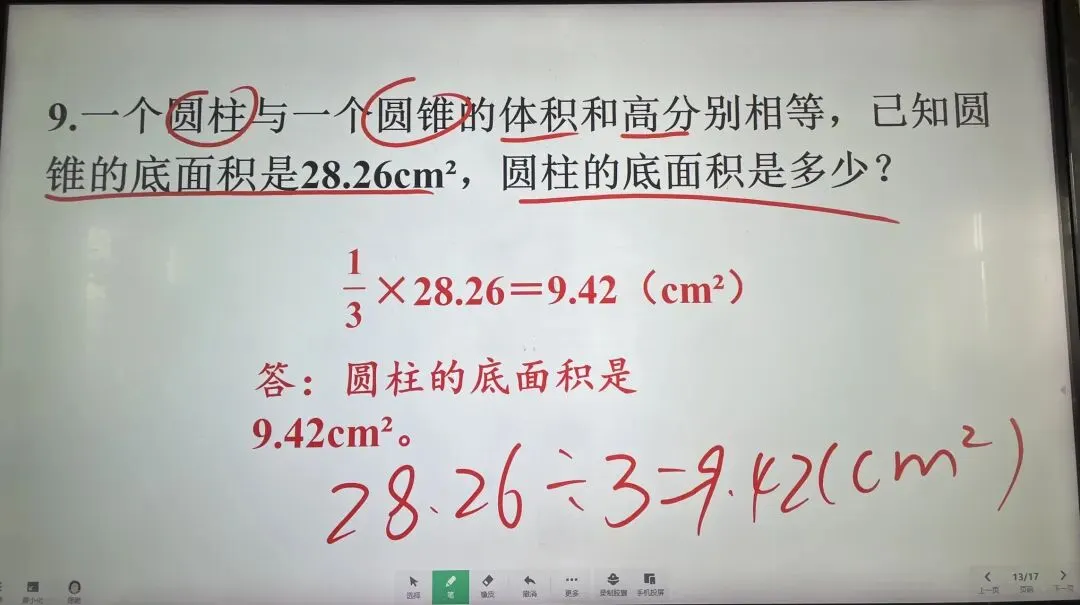 9.一个圆柱与一个圆锥的体积和高分别相等，已知圆
锥的底面积是28.26cm²，圆柱的底面积是多少？
1/3×28.26＝9.42（cm²）
答：圆柱的底面积是
9.42cm²。
28.26÷3=9.42(cm²)
选择 笔 橡皮 撤消 更多 录制胶囊 手机投屏
上一页 13/17 页码 下一页